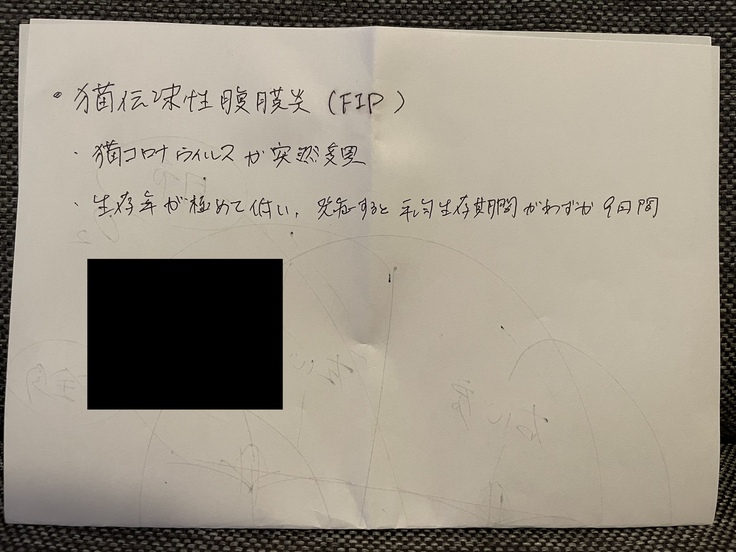 • 猫伝染性腹膜炎(FIP)
・猫コロナウイルスが突然変異
・生存率が極めて低い。発症すると平均生存期間がわずか9日間